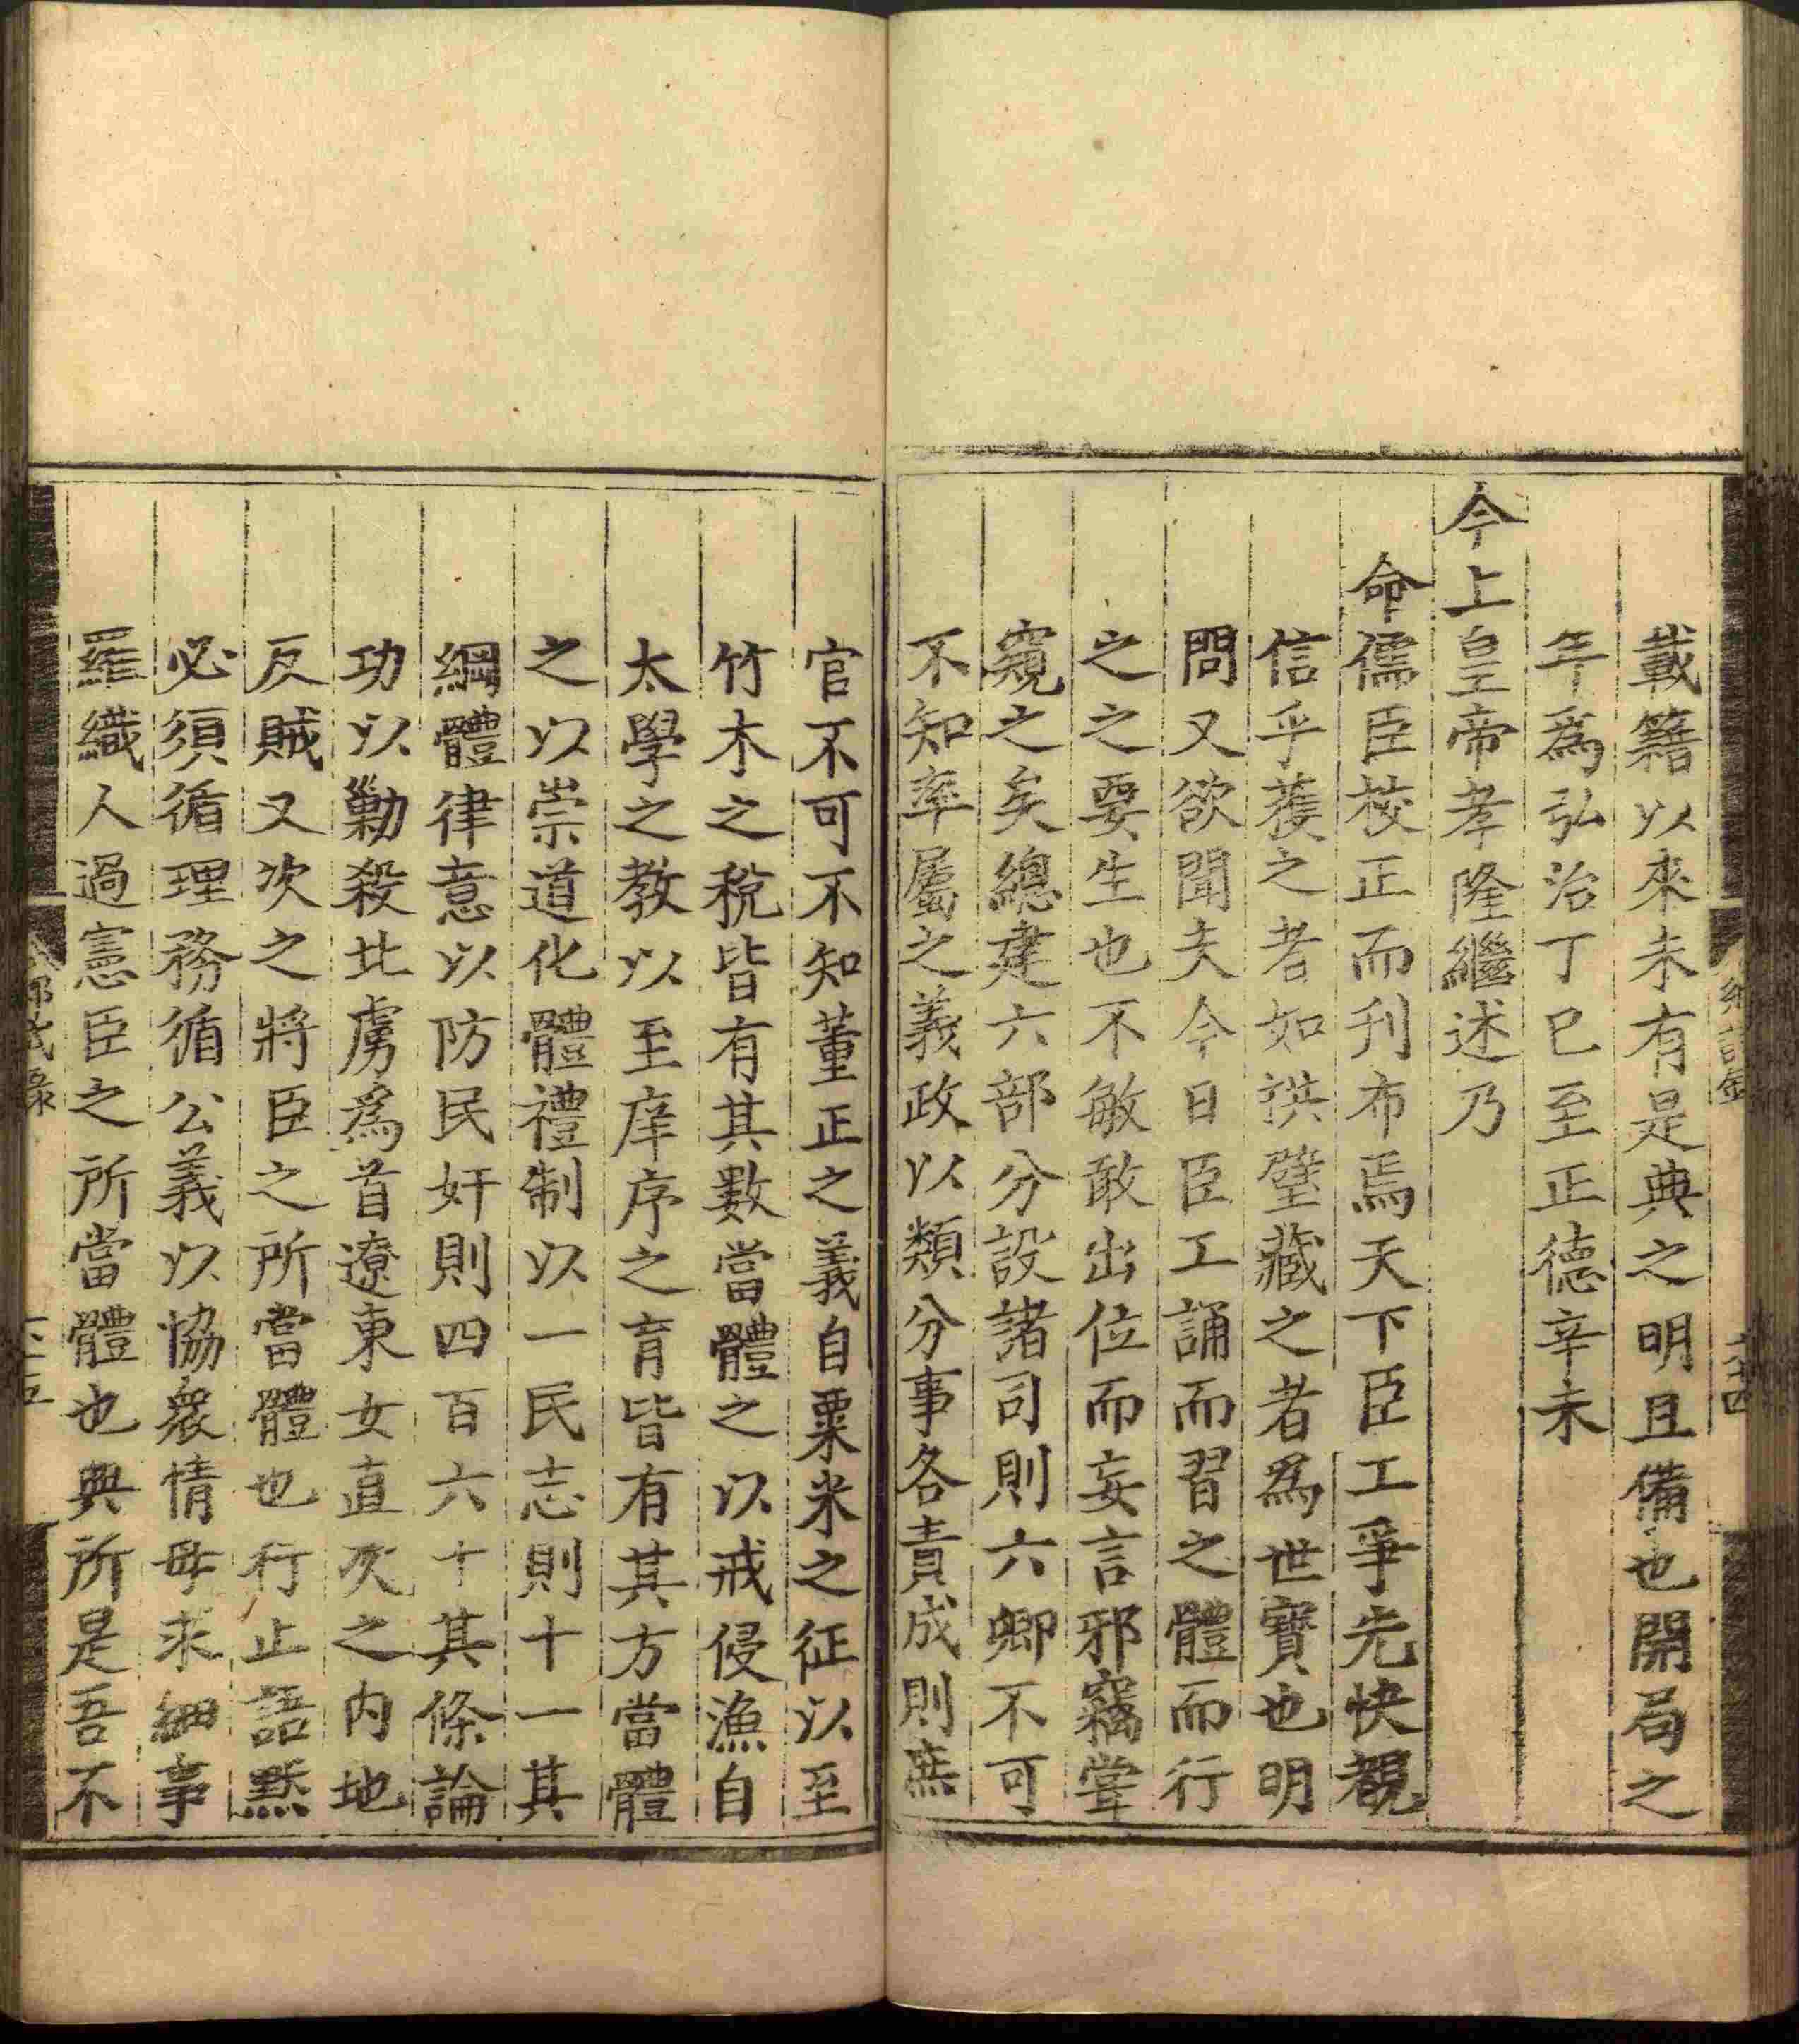 載籍以來未有是典之明且備也開局之
年爲弘治丁巳至正德辛未
今上皇帝孝隆繼述乃
命儒臣校正而刊布焉天下臣工爭先快覩
信乎獲之者如拱璧藏之者爲世寶也明
問又欲聞夫今日臣工誦而習之體而行
之之要生也不敏敢出位而妄言邪竊嘗
窺之矣總建六部分設諸司則六卿不可
不知率屬之義政以類分事各責成則庶
官不可不知董正之義自粟米之征以至
竹木之稅皆有其數當體之以戒侵漁自
太學之教以至庠序之育皆有其方當體
之以崇道化體禮制以一民志則十一其
綱體律意以防民奸則四百六十其條論
功以勦殺北虜爲首遼東女直次之內地
反賊又次之將臣之所當體也行止語黙
必須循理務循公義以協衆情毋求細事
羅織人過憲臣之所當體也典所是吾不
試錄